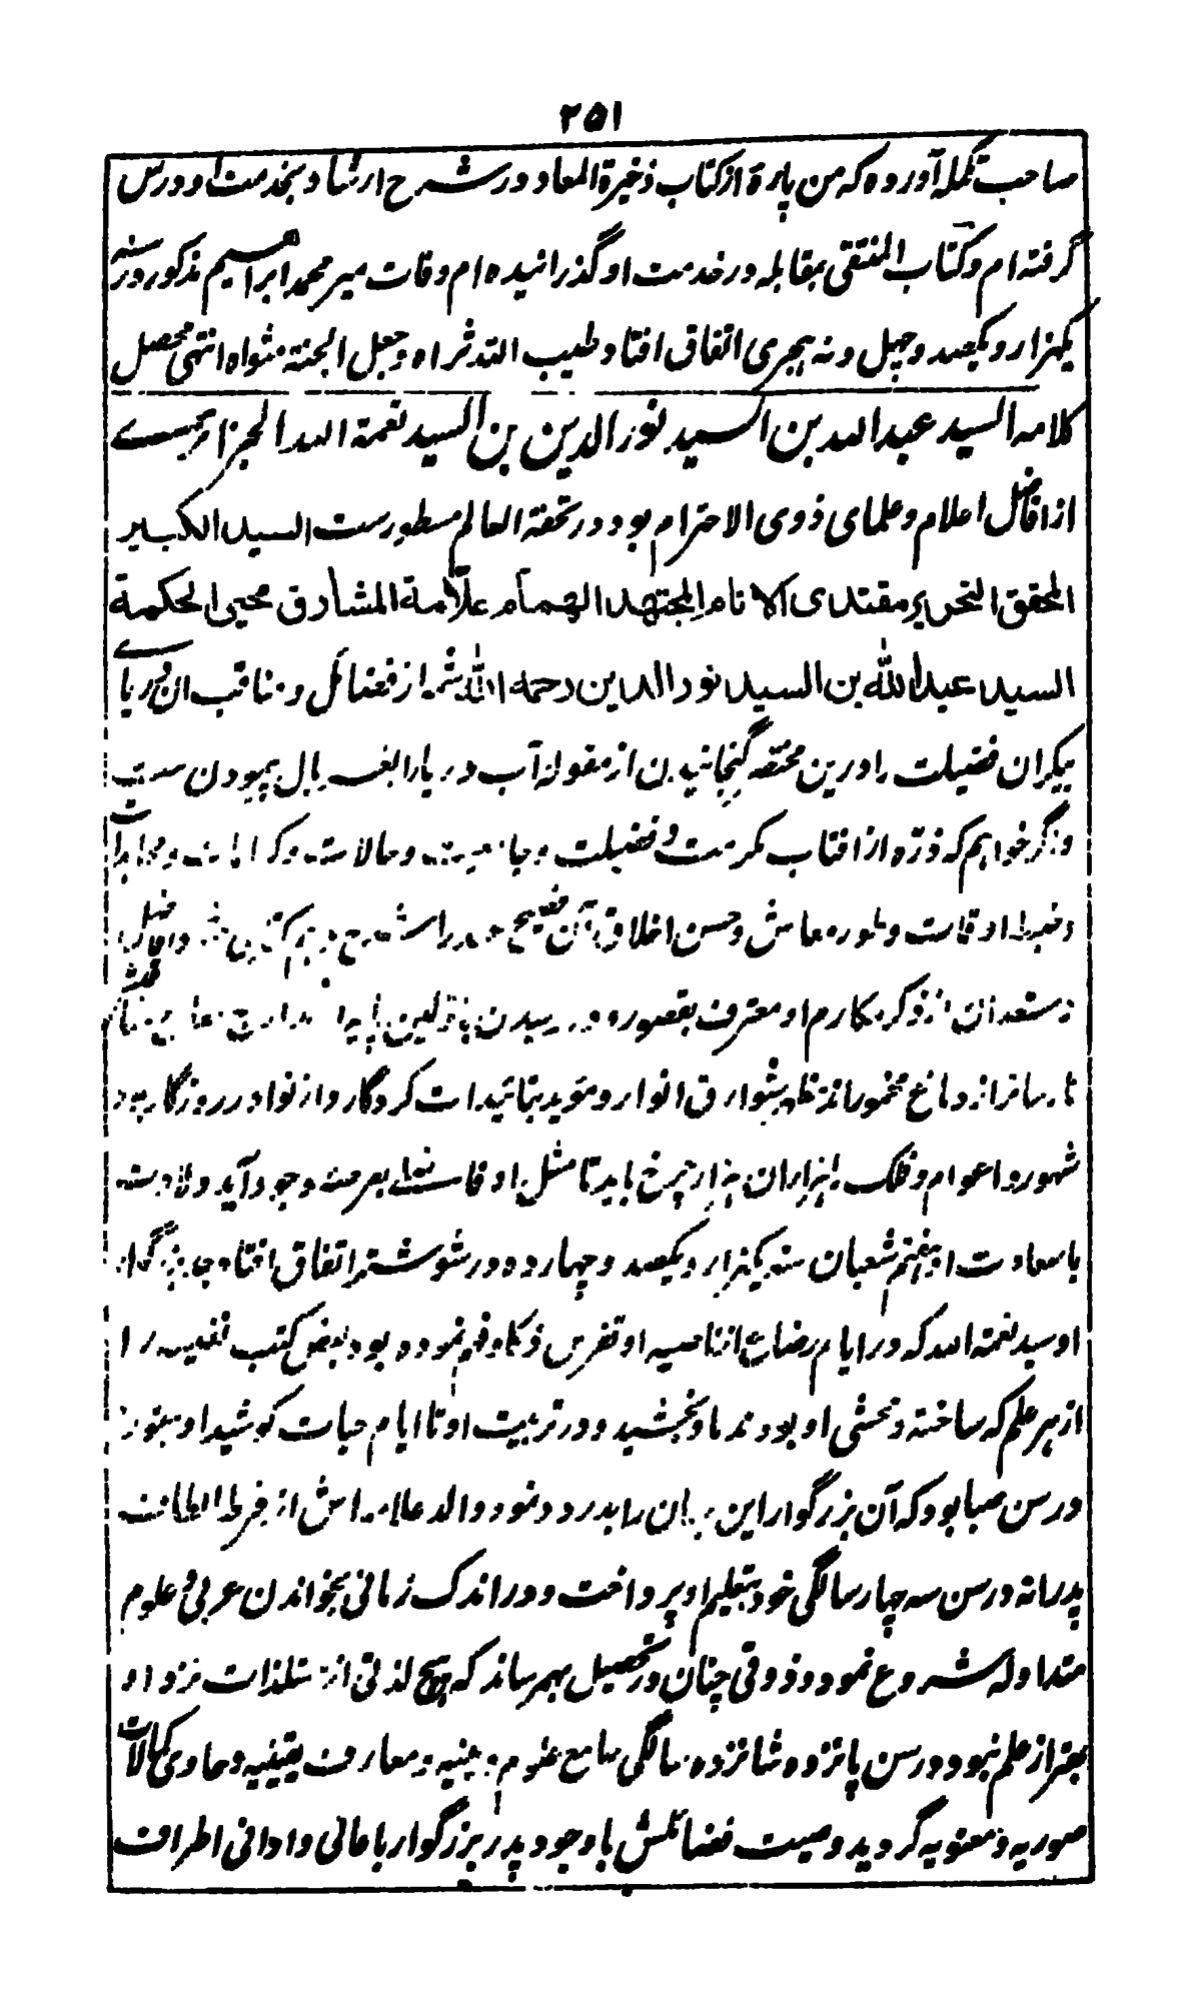 ۲۵۱
صاحب تکمله آورده که من پارهٔ از کتاب ذخیرة المعاد در شرح ارشاد بخدمت او درس
گرفته ام و کتاب المنتقی بمقابله در خدمت او گذرانیده ام وفات میر محمد ابراهیم مذکور در سنه
یکهزار و یکصد و چهل و نه هجری اتفاق افتاد طیب الله ثراه وجعل الجنة مثواه انتهی محصل
کلامه السید عبدالله بن السید نورالدین بن السید نعمة الله الجزایری
از افاضل اعلام و علمای ذوی الاحترام بود در تحفة العالم مسطورست السید الکبیر
المحقق النحریر مقتدای الانام المجتهد الهمام علّامة المشارق محیی الحکمة
السید عبدالله بن السید نورالدین رحمه الله شمهٔ از فضائل و مناقب آن دریای
بیکران فضیلت را درین مختصر گنجانیدن از مقولهٔ آب دریا را بغربال پیمودن ست
و اگر خواهم که ذرّه از افتاب مکرمت و فضیلت و جامعیت و حالات و کرامات و
و ضبط اوقات و طور معاش و حسن اخلاق آن فصیح و افاضل
مستعدان از ذکر مکارم او معترف بقصور و در رسیدن مدارج
نظر بشوارق انوار و مؤید بتائیدات کردگار و از نوادر روزگار بود
شهور و اعوام و فلک را هزاران هزار چرخ باید تا مثل او بعرصه وجود آید ولادت
با سعادت او هفتم شعبان سنه یکهزار و یکصد و چهارده در شوشتر اتفاق افتاد جد بزرگوار
او سید نعمة الله که در ایام رضاع از ناصیه او تفرس ذکا و فهم نموده بود بعض کتب نفیسه را
از هر علم که ساخته و محشی او بودند باو بخشید و در تربیت او تا ایام حیات کوشید او هنوز
در سن صبا بود که آن بزرگوار این جهان را بدرود نمود والد علامه اش از فرط
پدرانه در سن سه چهار سالگی خود بتعلیم او پرداخت و در اندک زمانی بخواندن عربی و علوم
متداوله شروع نمود و ذوقی چنان در تحصیل بهم رساند که هیچ لذتی از مستلذات نزد او
بهتر از علم نبود و در سن پانزده شانزده سالگی جامع علوم دینیه و معارف یقینیه و حاوی کمالات
صوریه و معنویه گردید و صیت فضائلش با وجود پدر بزرگوار باعالی و ادانی اطراف